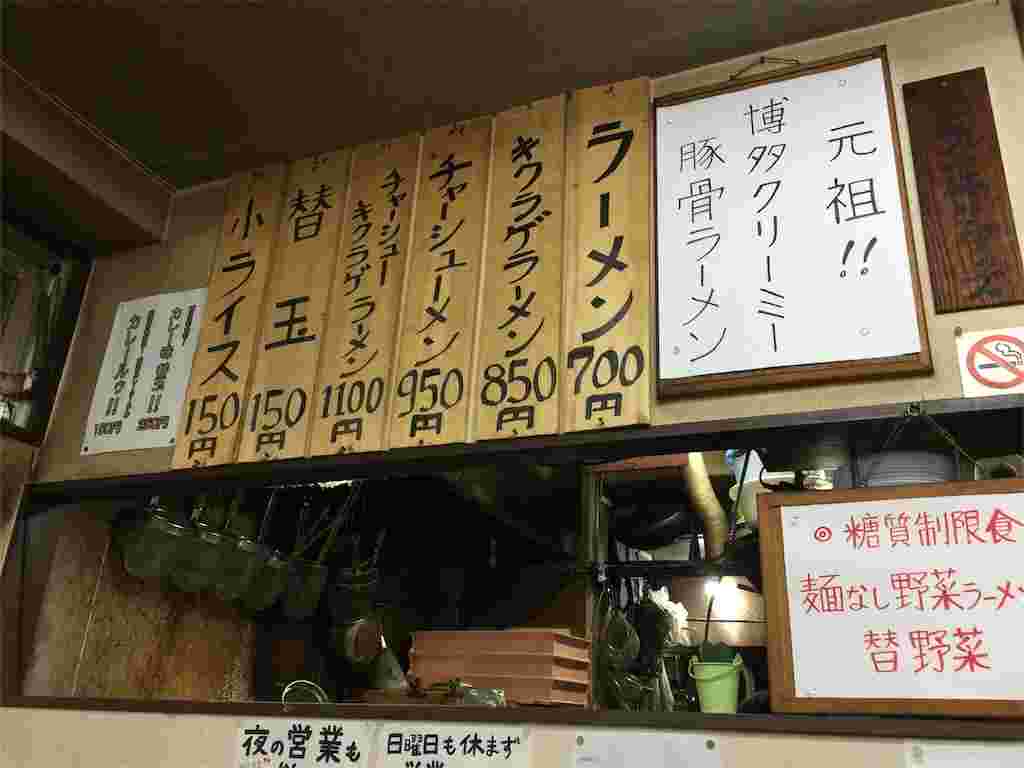 元祖!!
博多クリーミー
豚骨ラーメン
ラーメン
700円
キクラゲラーメン
850円
チャーシューメン
950円
チャーシュー
キクラゲラーメン
1100円
替玉
150円
小ライス
150円
◎糖質制限食
麺なし野菜ラーメン
替野菜
夜の営業も
日曜日も休まず